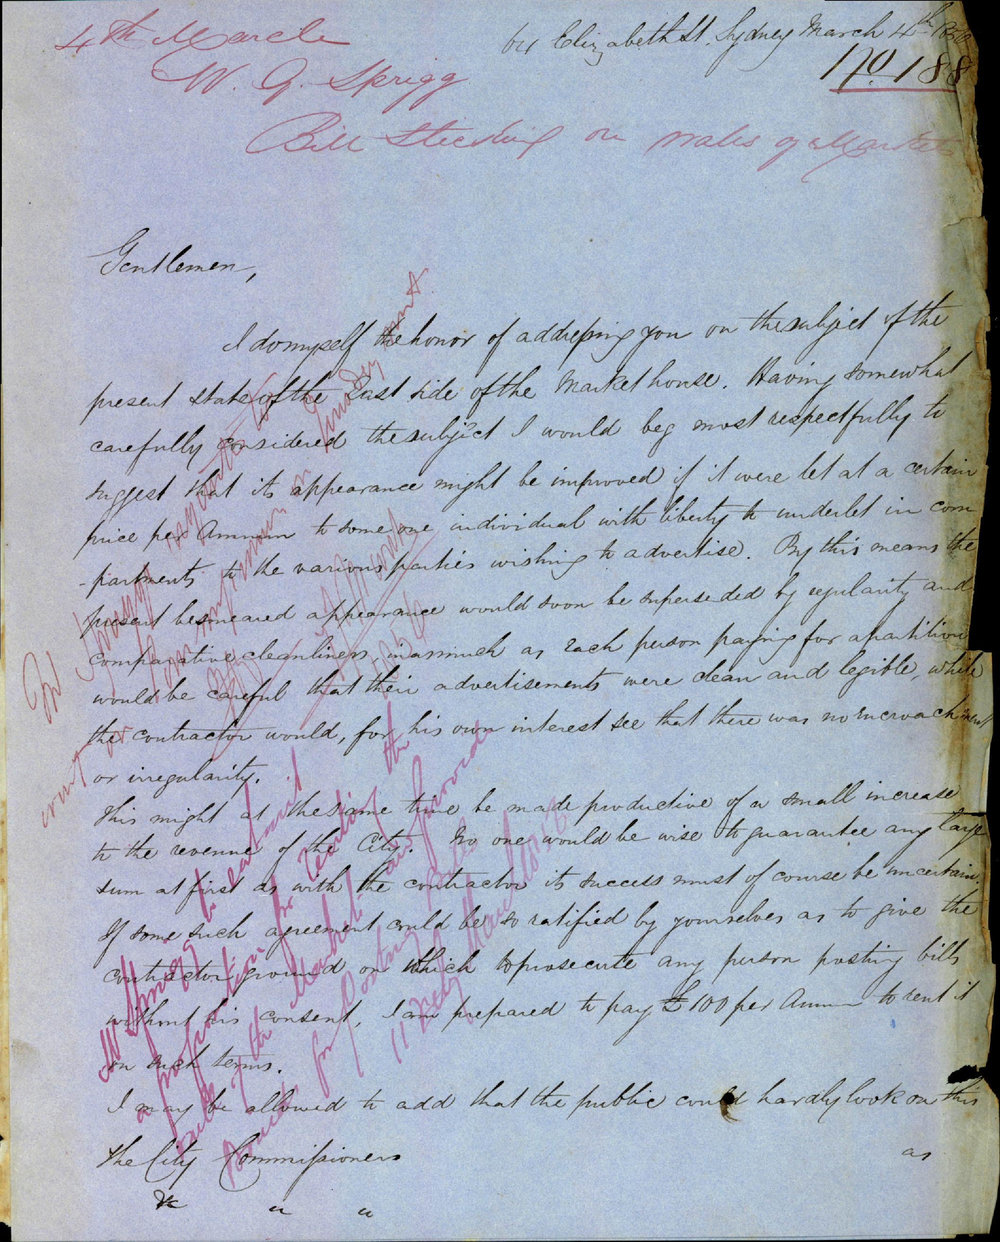 4th March
W. G. Sprigg
Bill Sticking on walls of Market
Elizabeth St. Sydney March 4th
No 188
Gentlemen,
I do myself the honor of addressing you on the subject of the
present state of the East side of the Market house. Having somewhat
carefully considered the subject I would beg most respectfully to
suggest that its appearance might be improved if it were let at a certain
price per Annum to some one individual with liberty to underlet in com
-partments to the various parties wishing to advertise. By this means the
present besmeared appearance would soon be superseded by regularity and
comparative cleanliness inasmuch as each person paying for a partition
would be careful that their advertisements were clean and legible, while
the contractor would, for his own interest see that there was no encroachment
or irregularity.
This might at the same time be made productive of a small increase
to the revenue of the City. No one would be wise to guarantee any large
sum at first as with the contractor its success must of course be uncertain.
If some such agreement could be so ratified by yourselves as to give the
contractor ground on which to prosecute any person posting bills
without his consent, I am prepared to pay £100 per Annum to rent it
on such terms.
I may be allowed to add that the public could hardly look on this
The City Commissioners
as
&c " "
Mr Sprigg requested to
on Tuesday next.
Mr Sprigg to
a proposition for renting the
walls of the Market
for Posting Bills
11 March